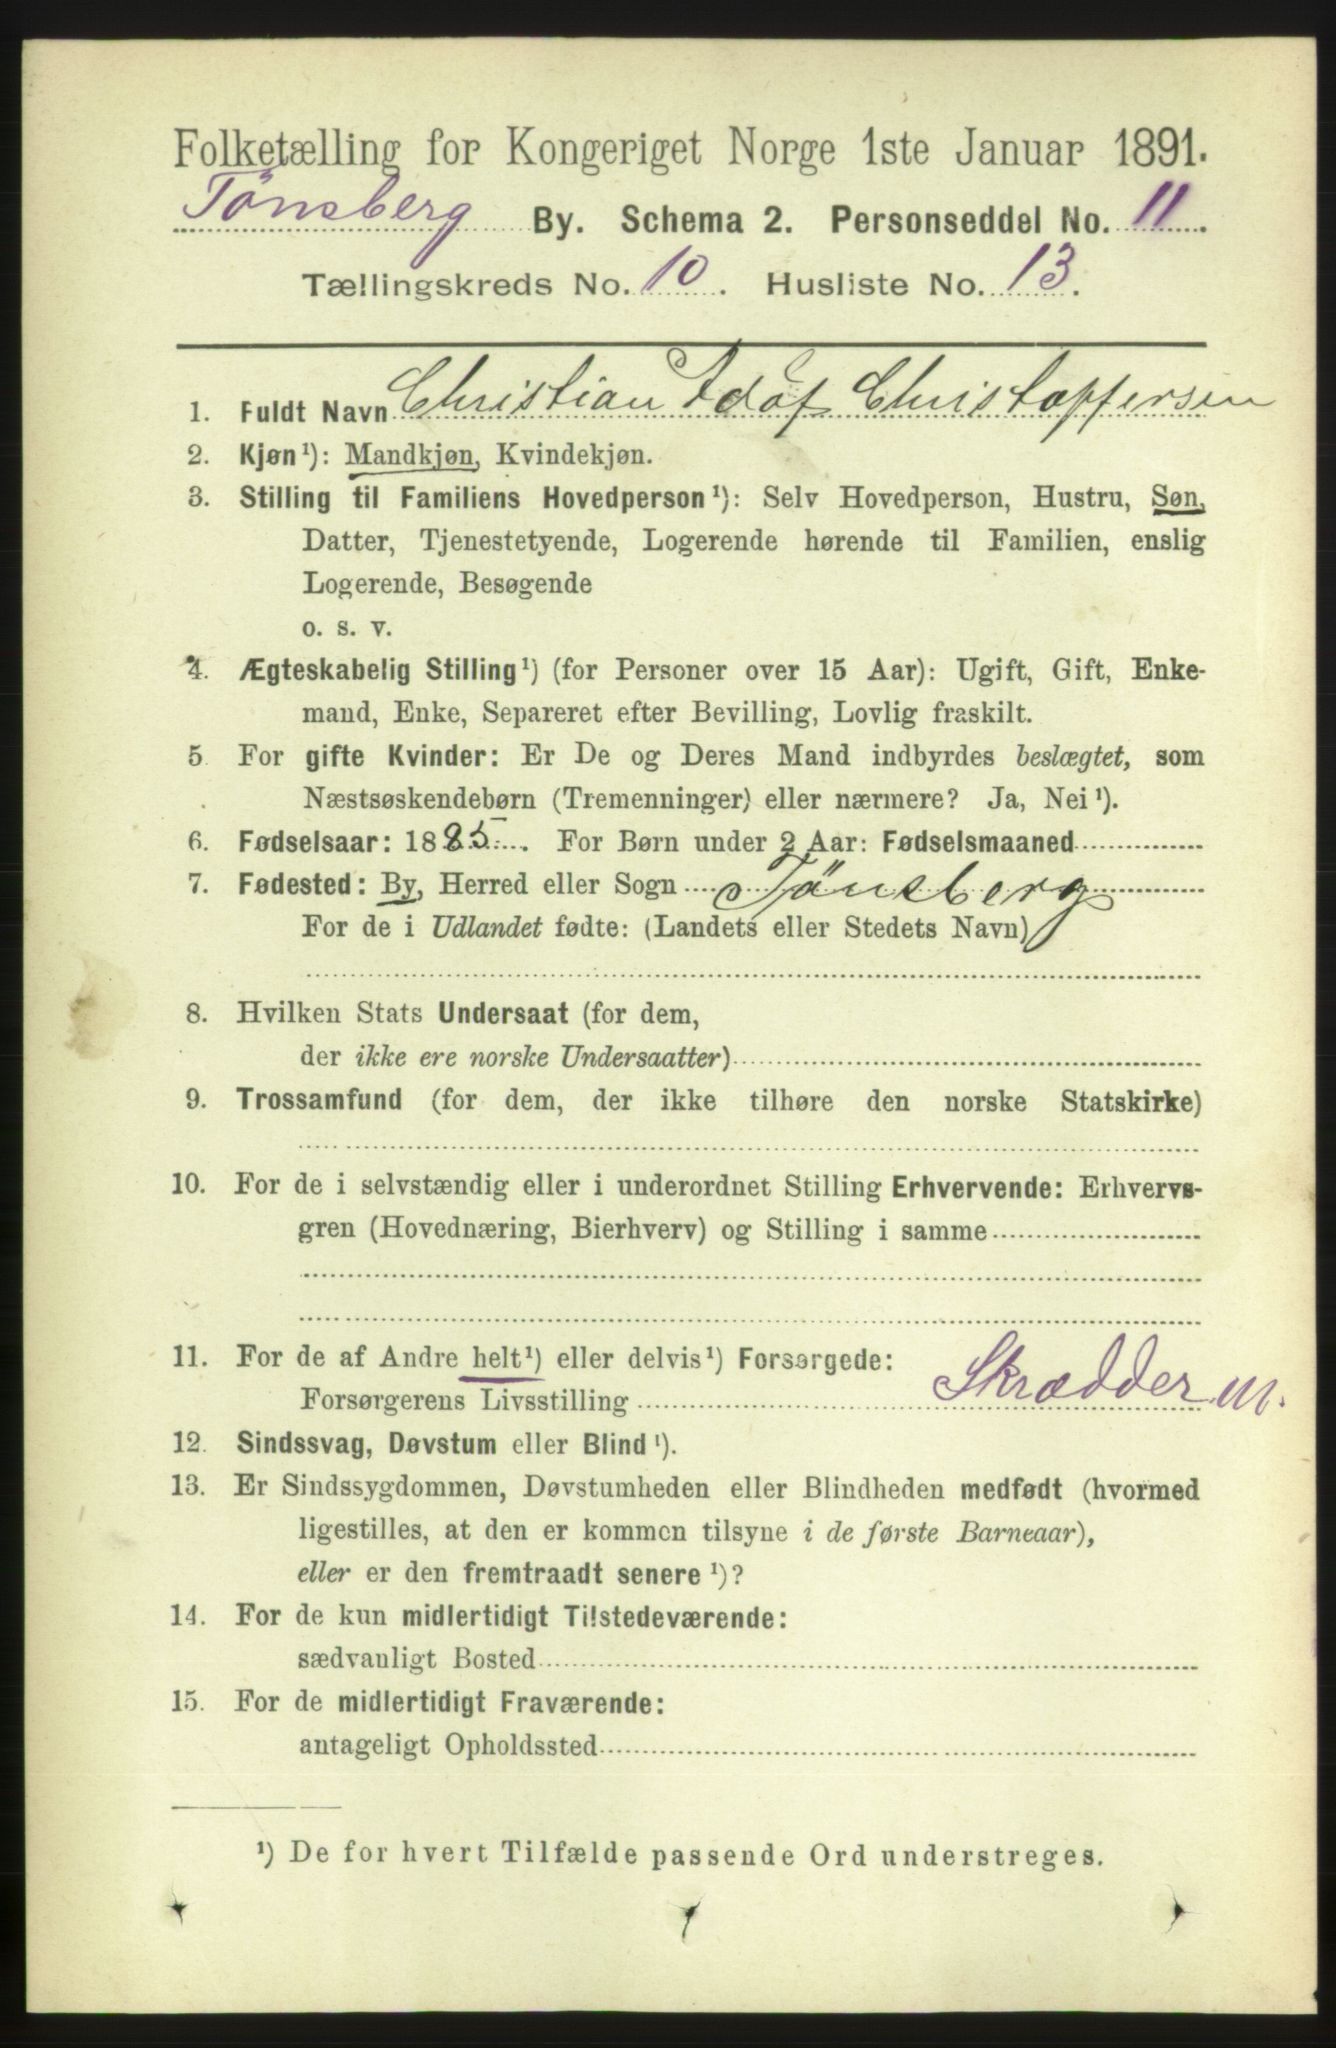 Folketælling for Kongeriget Norge 1ste Januar 1891.
Tönsberg By. Schema 2. Personseddel No. 11.
Tællingskreds No. 10. Husliste No. 13.
1. Fuldt Navn Christian Adolf Christoffersen
2. Kjøn ¹): Mandkjøn, Kvindekjøn.
3. Stilling til Familiens Hovedperson ¹): Selv Hovedperson, Hustru, Søn,
Datter, Tjenestetyende, Logerende hørende til Familien, enslig
Logerende, Besøgende
o. s. v.
4. Ægteskabelig Stilling ¹) (for Personer over 15 Aar): Ugift, Gift, Enke-
mand, Enke, Separeret efter Bevilling, Lovlig fraskilt.
5 For gifte Kvinder: Er De og Deres Mand indbyrdes beslægtet, som
Næstsøskendebørn (Tremenninger) eller nærmere? Ja, Nei ¹).
6. Fødselsaar: 1885. For Børn under 2 Aar: Fødselsmaaned
7. Fødested: By, Herred eller Sogn Tönsberg
For de i Udlandet fødte: (Landets eller Stedets Navn)
8. Hvilken Stats Undersaat (for dem,
der ikke ere norske Undersaatter)
9. Trossamfund (for dem, der ikke tilhøre den norske Statskirke)
10. For de i selvstændig eller i underordnet Stilling Erhvervende: Erhvervs-
gren (Hovednæring, Bierhverv) og Stilling i samme
11. For de af Andre helt ¹) eller delvis ¹) Forsørgede:
Forsørgerens Livsstilling Skrædderm.
12. Sindssvag, Døvstum eller Blind ¹).
13. Er Sindssygdommen, Døvstumheden eller Blindheden medfødt (hvormed
ligestilles, at den er kommen tilsyne i de første Barneaar),
eller er den fremtraadt senere ¹)?
14. For de kun midlertidigt Tilstedeværende:
sædvanligt Bosted
15. For de midlertidigt Fraværende:
antageligt Opholdssted
¹) De for hvert Tilfælde passende Ord understreges.